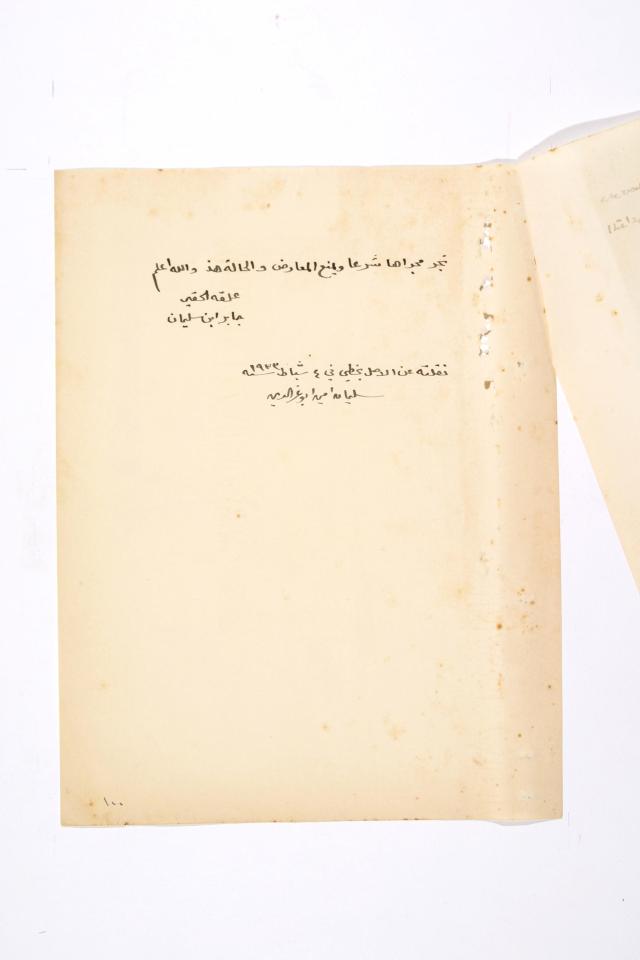 تجر مجراها شرعا ويمنع المعارض والحالة هذه والله اعلم
علقه الحقير
جابر ابن سليمان
نقلته عن الاصل بخطي في ٤ شباط سنه ١٩٣٣
سليمان امين ابو عز الدين
١٠٠